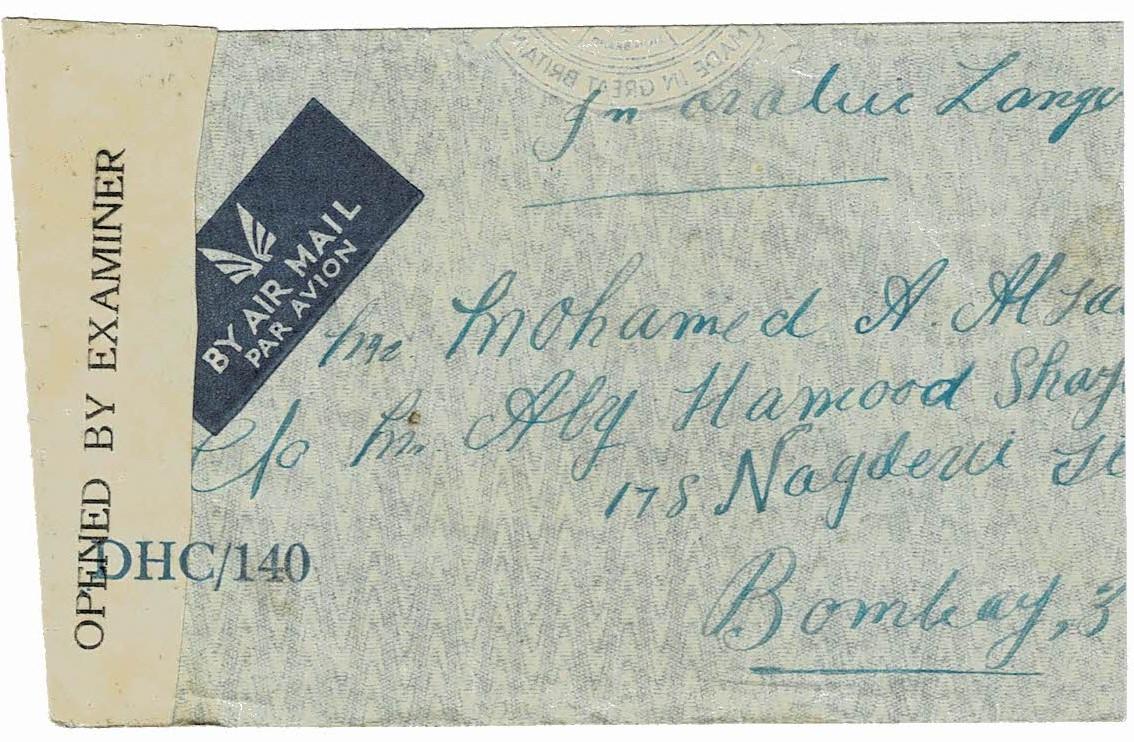 MADE IN GREAT BRITAIN
In arabic Langu
OPENED BY EXAMINER
BY AIR MAIL
PAR AVION
Mr. Mohamed A. Alsa
C/o Mr. Aly Hamood Shay
178 Nagdevi St
Bombay, 3
DHC/140